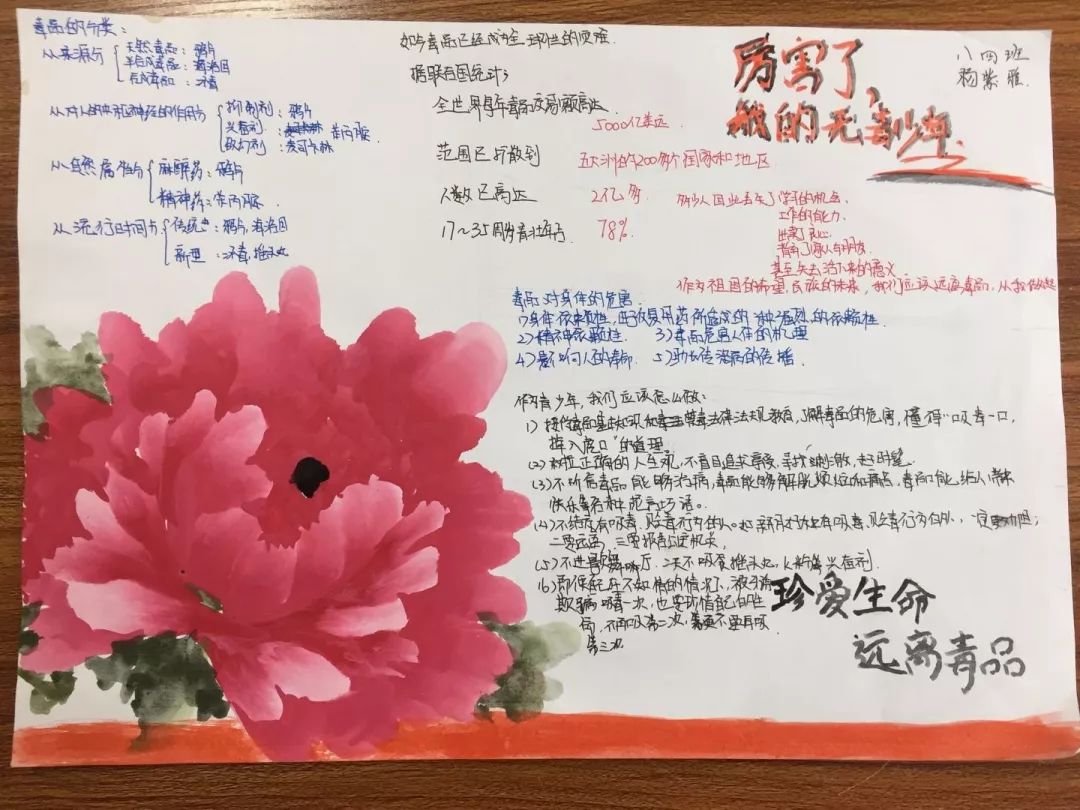 毒品的分类：
从来源分
天然毒品：鸦片
半合成毒品：海洛因
合成毒品：冰毒
从对人的中枢神经的作用分
抑制剂：鸦片
兴奋剂：苯丙胺
致幻剂：麦司卡林
从自然属性分
麻醉药：鸦片
精神药：苯丙胺
从流行时间分
传统：鸦片，海洛因
新型：冰毒，摇头丸
如今毒品已经成为全球性的灾难
据联合国统计：
全世界每年毒品交易额高达
5000亿美元
范围已扩散到
五大洲的200多个国家和地区
人数已高达
2亿多
17～35周岁青壮年占
78%
厉害了，
我的无毒少年
八四班
杨紫雅
多少人因此丢失了学习的机会
工作的能力
出卖了良心
甚至失去活下来的意义
作为祖国的希望，民族的未来，我们应该远离毒品，从我做起
毒品对身体的危害
1)身体依赖性，由于反复用药所造成的一种强烈的依赖性
2)精神依赖性
3)毒品危害人体的机理
5)助长传染病的传播
作为青少年，我们应该怎么做：
1)接受毒品基本知识和禁毒法律法规教育，了解毒品的危害，懂得“吸毒一口，
掉入虎口”的道理。
(2)树立正确的人生观，不盲目追求享受，寻找刺激，赶时髦
(3)不听信毒品能够治病，毒品能够解脱烦恼和痛苦，毒品能给人带来
快乐等各种花言巧语。
(4)不结交有吸毒、贩毒行为的人。如新发现有吸毒、贩毒行为的人，一定要劝阻；
二要远离，三要报告公安机关，
(5)不进歌舞厅，
(6)即使自己在不知情的情况下，被引诱
欺骗吸毒一次，也要珍惜自己的生
命，不再吸第二次，更不要再吸
第三次
珍爱生命
远离毒品